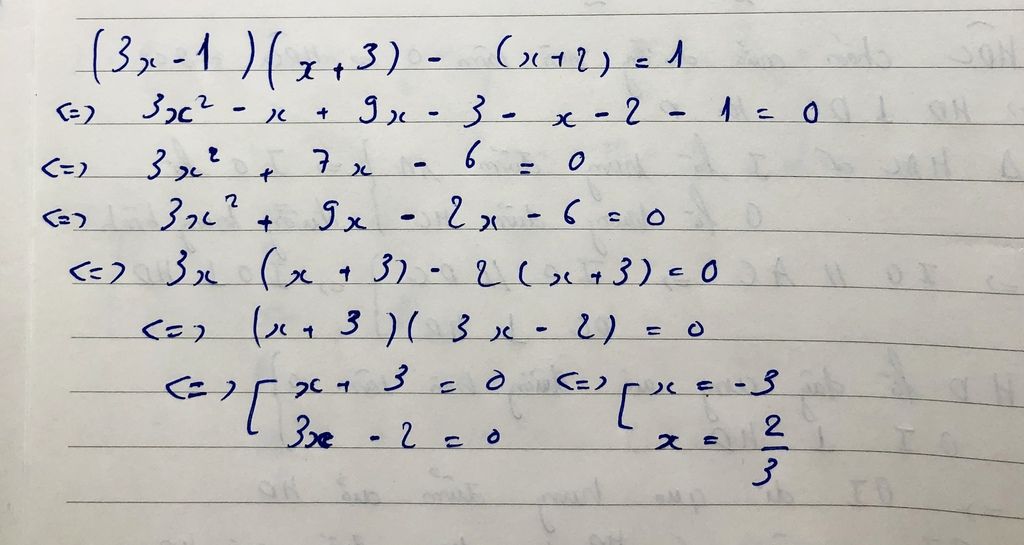 (3x - 1)(x + 3) - (x + 2) = 1
<=> 3x² - x + 9x - 3 - x - 2 - 1 = 0
<=> 3x² + 7x - 6 = 0
<=> 3x² + 9x - 2x - 6 = 0
<=> 3x (x + 3) - 2 (x + 3) = 0
<=> (x + 3)(3x - 2) = 0
<=> [ x + 3 = 0 <=> [ x = -3
3x - 2 = 0 x = 2/3